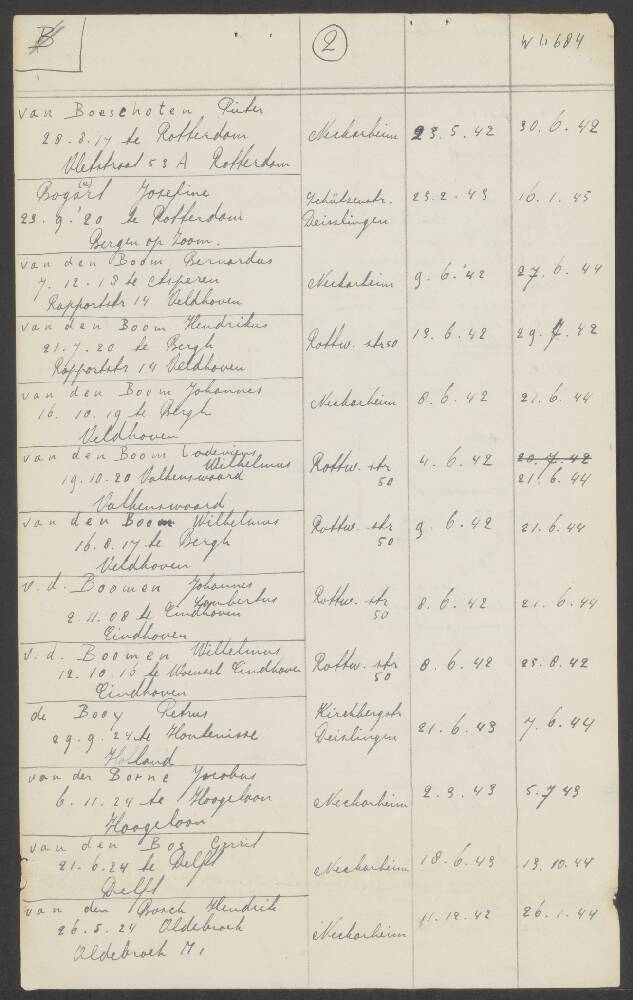 B 2 W 4684
van Boeschoten Pieter
28.8.17 te Rotterdam Neckarheim 23.5.42 30.6.42
Vlietstraat 53 A Rotterdam
Bogart (a) Josefine Schützenstr. 23.2.43 16.1.45
23.9.'20 te Rotterdam Deisslingen
Bergen op Zoom.
van den Boom Bernardus
7.12.18 te Asperen Neckarheim 9.6.'42 27.6.44
Rapportstr 14 Veldhoven
van den Boom Hendrikus
21.7.20 te Bergh Rottw. str 50 13.6.42 29.7.42
Rapportstr 14 Veldhoven
van den Boom Johannes
16.10.19 te Bergh Neckarheim 8.6.42 21.6.44
Veldhoven
van den Boom Lodevicus
Wilhelmus Rottw. str 4.6.42 20.7.42
19.10.20 Valkenswaard 50 21.6.44
Valkenswaard
van den Boom Wilhelmus Rottw. str 9.6.42 21.6.44
16.8.17 te Bergh 50
Veldhoven
v.d. Boomen Johannes
Lambertus Rottw. str 8.6.42 21.6.44
2.11.08 te Eindhoven 50
Eindhoven
v.d. Boomen Wilhelmus
12.10.16 te Woensel Eindhoven Rottw. str 8.6.42 25.8.42
Eindhoven 50
de Booy Petrus Kirchbergstr
29.9.'24 te Hontenisse Deislingen 21.6.43 7.6.44
Holland
van der Borne Jacobus
6.11.24 te Hoogeloon Neckarheim 2.9.43 5.7 43
Hoogeloon
van den Bos Gerrit
21.6.24 te Delft Neckarheim 18.6.43 13.10.44
Delft
van den Bosch Hendrik 11.12.42 26.1.44
26.5.24 Oldebroek Neckarheim
Oldebroek M,